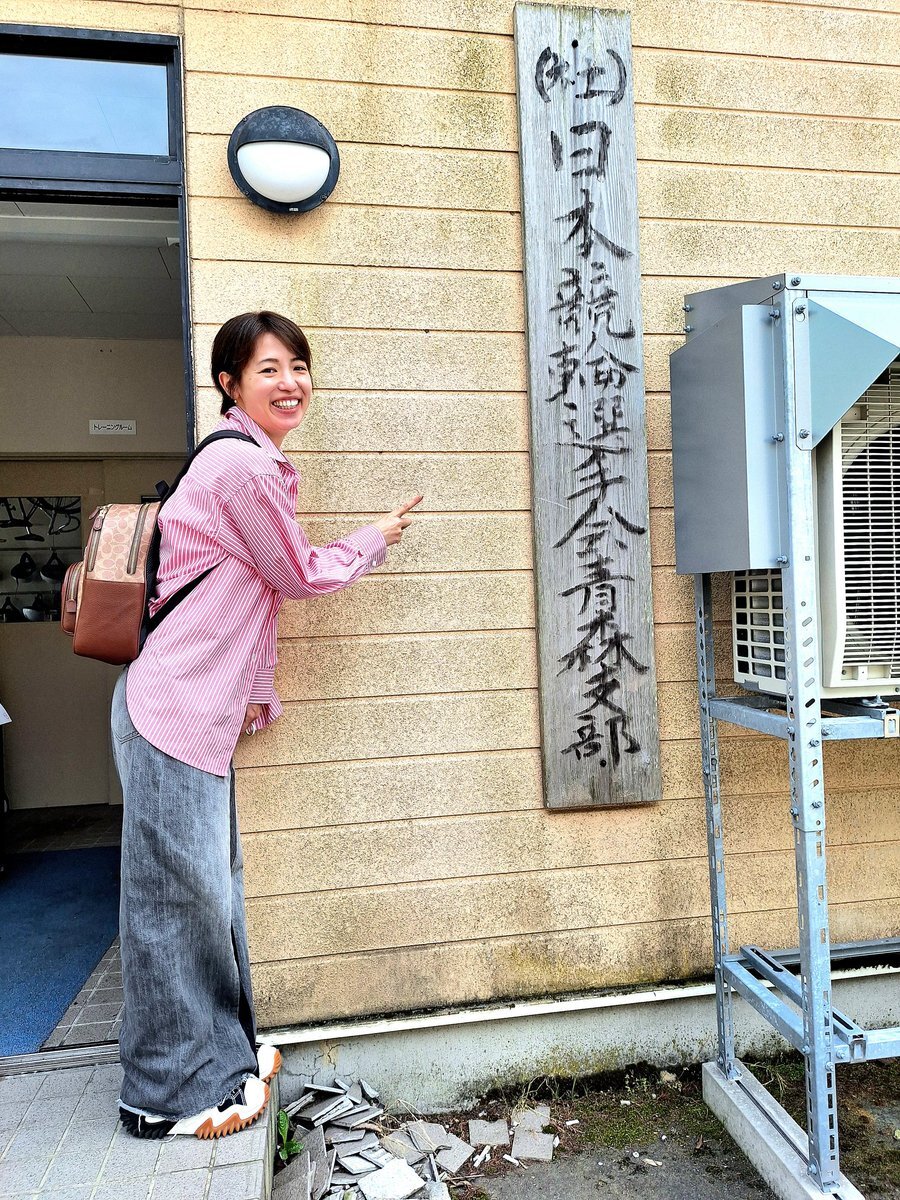 (社)日本競輪選手会青森支部
トレーニングルーム